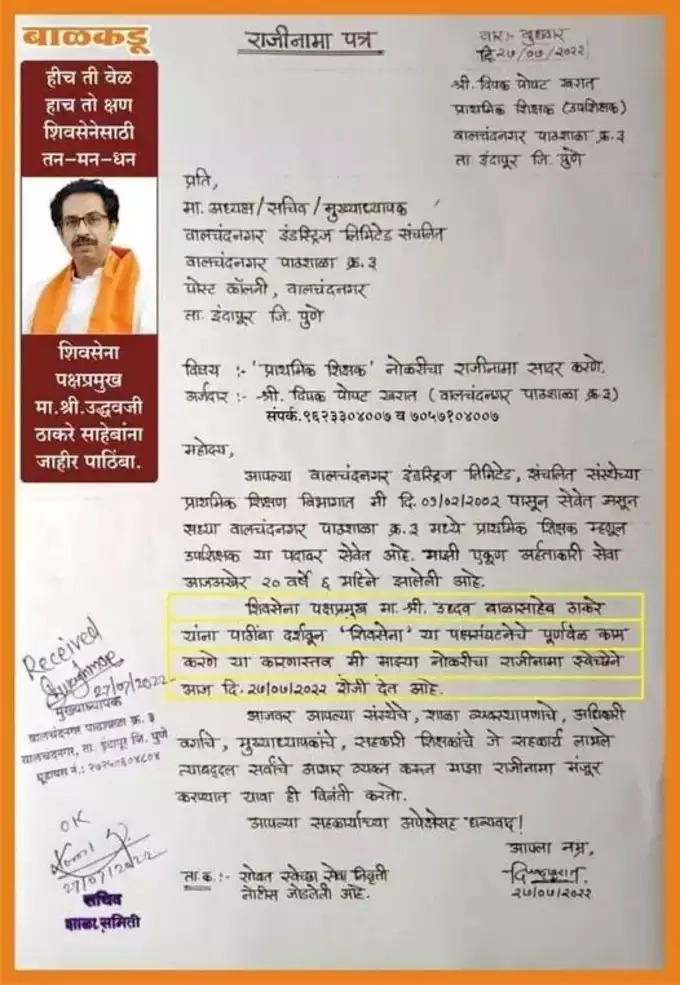 बाळकडू
हीच ती वेळ
हाच तो क्षण
शिवसेनेसाठी
तन-मन-धन
शिवसेना
पक्षप्रमुख
मा.श्री.उद्धवजी
ठाकरे साहेबांना
जाहीर पाठिंबा.
राजीनामा पत्र
वार:- बुधवार
दि.२७/०७/२०२२
श्री. दिपक पोपट खरात
प्राथमिक शिक्षक (उपशिक्षक)
वालचंदनगर पाठशाळा क्र.३
ता. इंदापूर जि. पुणे
प्रति,
मा. अध्यक्ष/सचिव/मुख्याध्यापक
वालचंदनगर इंडस्ट्रिज लिमिटेड संचलित
वालचंदनगर पाठशाळा क्र.३
पोस्ट कॉलनी, वालचंदनगर
ता. इंदापूर जि. पुणे
विषय :- 'प्राथमिक शिक्षक' नोकरीचा राजीनामा सादर करणे.
अर्जदार :- श्री. दिपक पोपट खरात (वालचंदनगर पाठशाळा क्र.३)
संपर्क.९६२३३०४००७ व ७०५७१०४००७
महोदय,
आपल्या वालचंदनगर इंडस्ट्रिज लिमिटेड, संचलित संस्थेच्या
प्राथमिक शिक्षण विभागात मी दि.०१/०२/२००२ पासून सेवेत असून
सध्या वालचंदनगर पाठशाळा क्र.३ मध्ये प्राथमिक शिक्षक म्हणून
उपशिक्षक या पदावर सेवेत आहे. माझी एकूण अर्हताकारी सेवा
आजअखेर २० वर्षे ६ महिने झालेली आहे.
शिवसेना पक्षप्रमुख मा. श्री. उध्दव बाळासाहेब ठाकरे
यांना पाठींबा दर्शवून 'शिवसेना' या पक्षसंघटनेचे पूर्णवेळ काम
करणे या कारणास्तव मी माझ्या नोकरीचा राजीनामा स्वेच्छेने
आज दि.२७/०७/२०२२ रोजी देत आहे.
आजवर आपल्या संस्थेचे, शाळा व्यवस्थापनाचे, अधिकारी
वर्गाचे, मुख्याध्यापकांचे, सहकारी शिक्षकांचे जे सहकार्य लाभले
त्याबद्दल सर्वांचे आभार व्यक्त करून माझा राजीनामा मंजूर
करण्यात यावा ही विनंती करतो.
आपल्या सहकार्याच्या अपेक्षेसह धन्यवाद!
आपला नम्र,
२७/०७/२०२२
ता.क.:- सोबत स्वेच्छा सेवा निवृत्ती
नोटीस जोडलेली आहे.
Received
27/07/2022
मुख्याध्यापक
वालचंदनगर पाठशाळा क्र. ३
वालचंदनगर, ता. इंदापूर जि. पुणे
OK
27/07/2022
सचिव
शाळा समिती